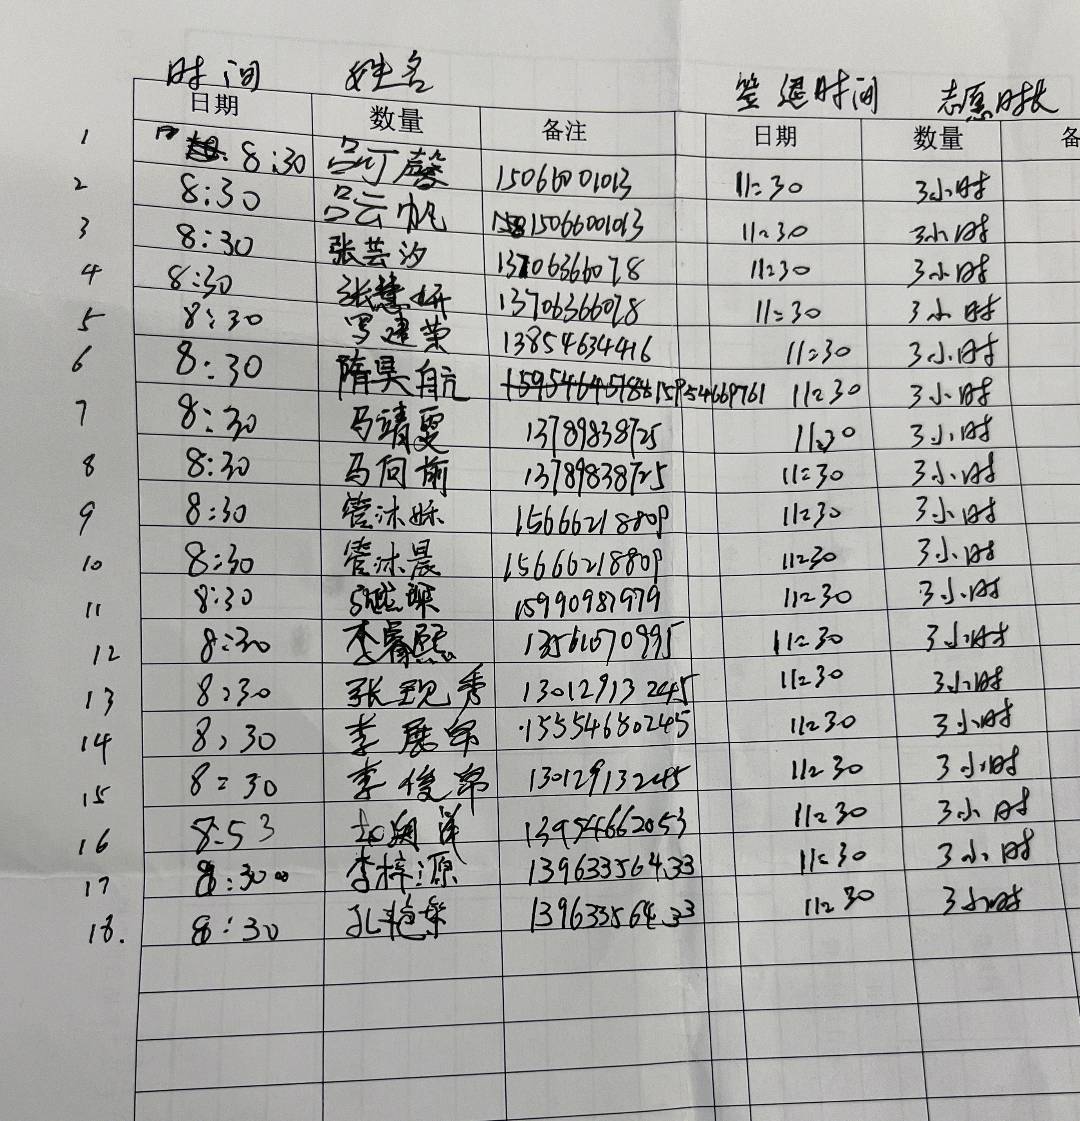 时间 姓名 签退时间 志愿时长
日期 数量 备注 日期 数量 备
1 8:30 吕可馨 15066001013 11:30 3小时
2 8:30 吕云帆 15066001013 11:30 3小时
3 8:30 张芸汐 13706366078 11:30 3小时
4 8:30 张慧妍 13706366078 11:30 3小时
5 8:30 罗建荣 13854634416 11:30 3小时
6 8:30 隋昊航 15954669761 11:30 3小时
7 8:30 马靖雯 13789838725 11:30 3小时
8 8:30 马向前 13789838725 11:30 3小时
9 8:30 管沐姝 15666218809 11:30 3小时
10 8:30 管沐晨 15666218809 11:30 3小时
11 8:30 15990987979 11:30 3小时
12 8:30 李睿熙 13561070995 11:30 3小时
13 8:30 张现秀 13012913245 11:30 3小时
14 8:30 李展帛 15554680245 11:30 3小时
15 8:30 李俊帛 13012913245 11:30 3小时
16 8:53 13954662053 11:30 3小时
17 8:30 李梓源 13963356433 11:30 3小时
18. 8:30 13963356433 11:30 3小时